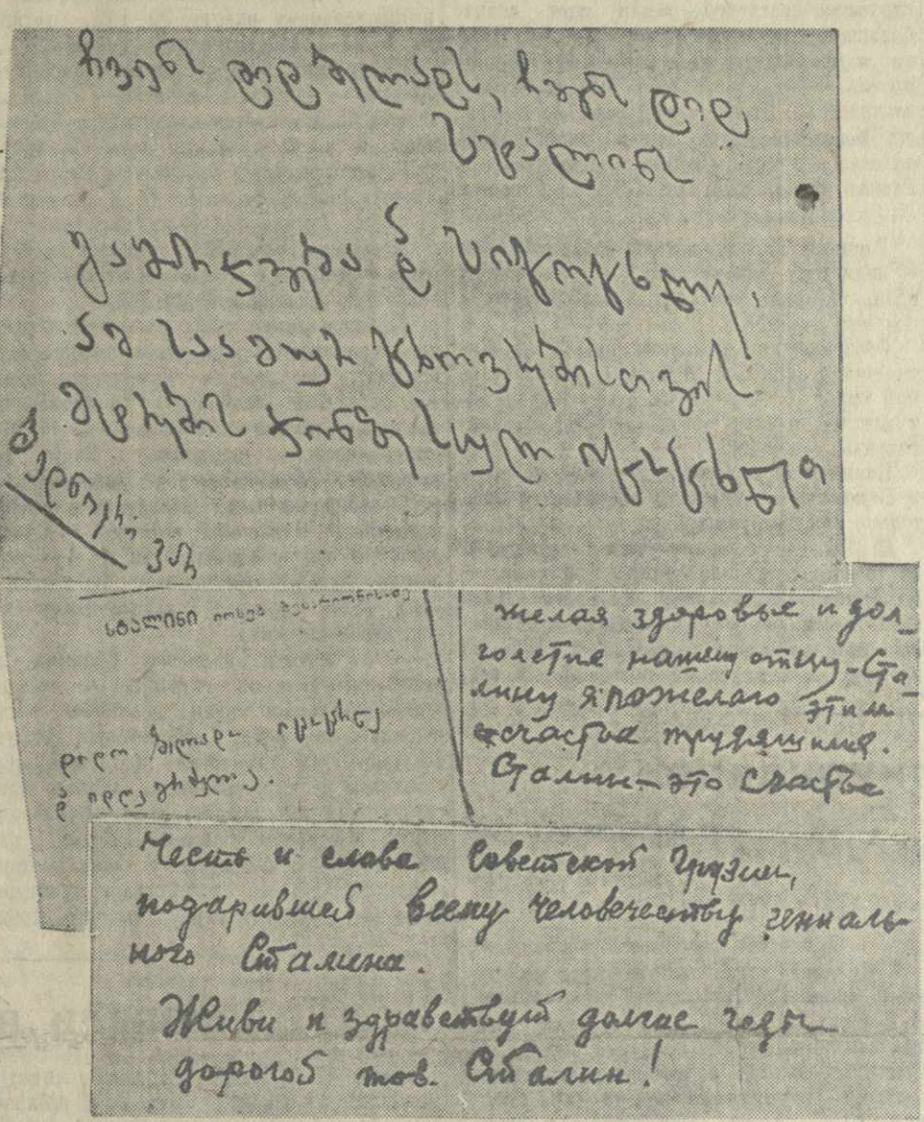 ჩვენს დიდ ბელადს, ჩვენს დიდ
სტალინს
გამარჯვება და სიცოცხლე,
ამ საამურ ცხოვრებისთვის
მტრების ჯინზე სულ იცოცხლე
ბედნიერი
ვარ
სტალინი იოსებ
დიდო ბელადო იცოცხლე
და
желая здоровья и дол-
голетия нашему отцу-Ста-
лину я пожелаю этим
счастья трудящимся.
Сталин-это счастье
Честь и слава Советской Грузии,
подарившей всему человечеству гениаль-
ного Сталина.
Живи и здравствуй долгие годы
дорогой тов. Сталин!